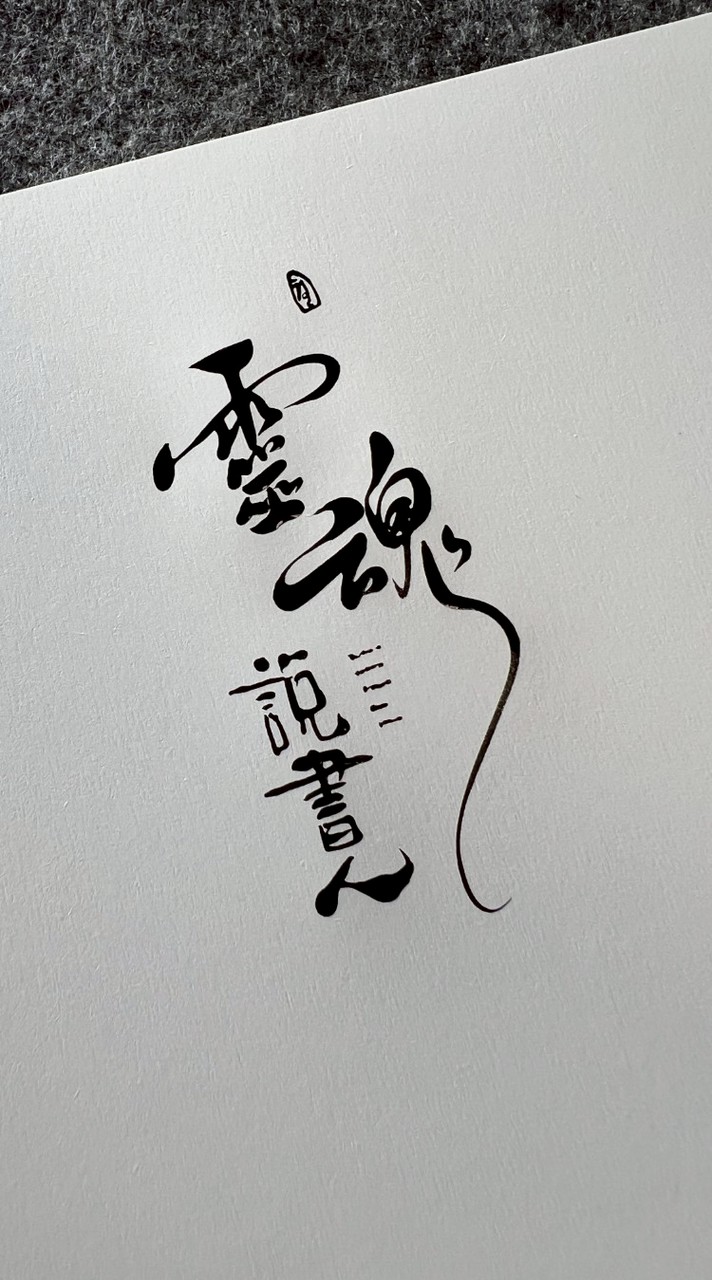 靈魂
説書人